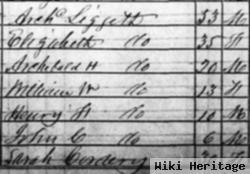 Archd Liggett 53 M
Elizabeth do 35 F
Archibald H do 20 M
William W do 13 M
Henry H do 10 M
John C do 6 M
Sarah Cordery
Wiki Heritage